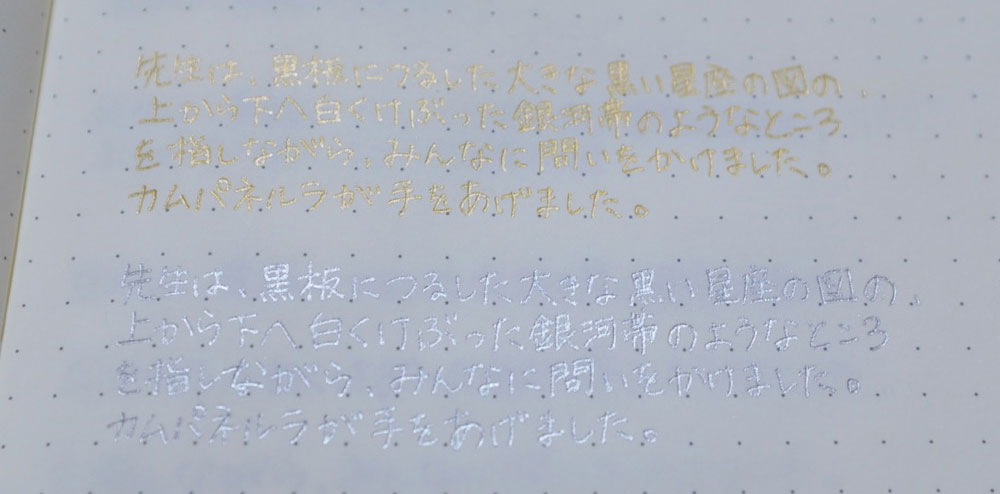 先生は、黒板につるした大きな黒い星座の図の、
上から下へ白くけぶった銀河帯のようなところ
を指しながら、みんなに問いをかけました。
カムパネルラが手をあげました。
先生は、黒板につるした大きな黒い星座の図の、
上から下へ白くけぶった銀河帯のようなところ
を指しながら、みんなに問いをかけました。
カムパネルラが手をあげました。